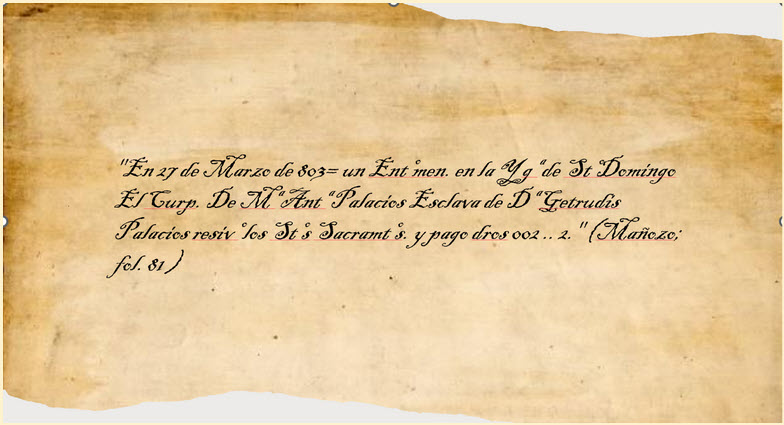 "En 27 de Marzo de 803= un Ent°men. en la Yg ª de St Domingo
El Curp. De MªAnt ªPalacios Esclava de D ªGetrudis
Palacios resiv °los St°s Sacramt°s. y pago dros 002 .. 2. " (Mañozo;
fol. 81 )